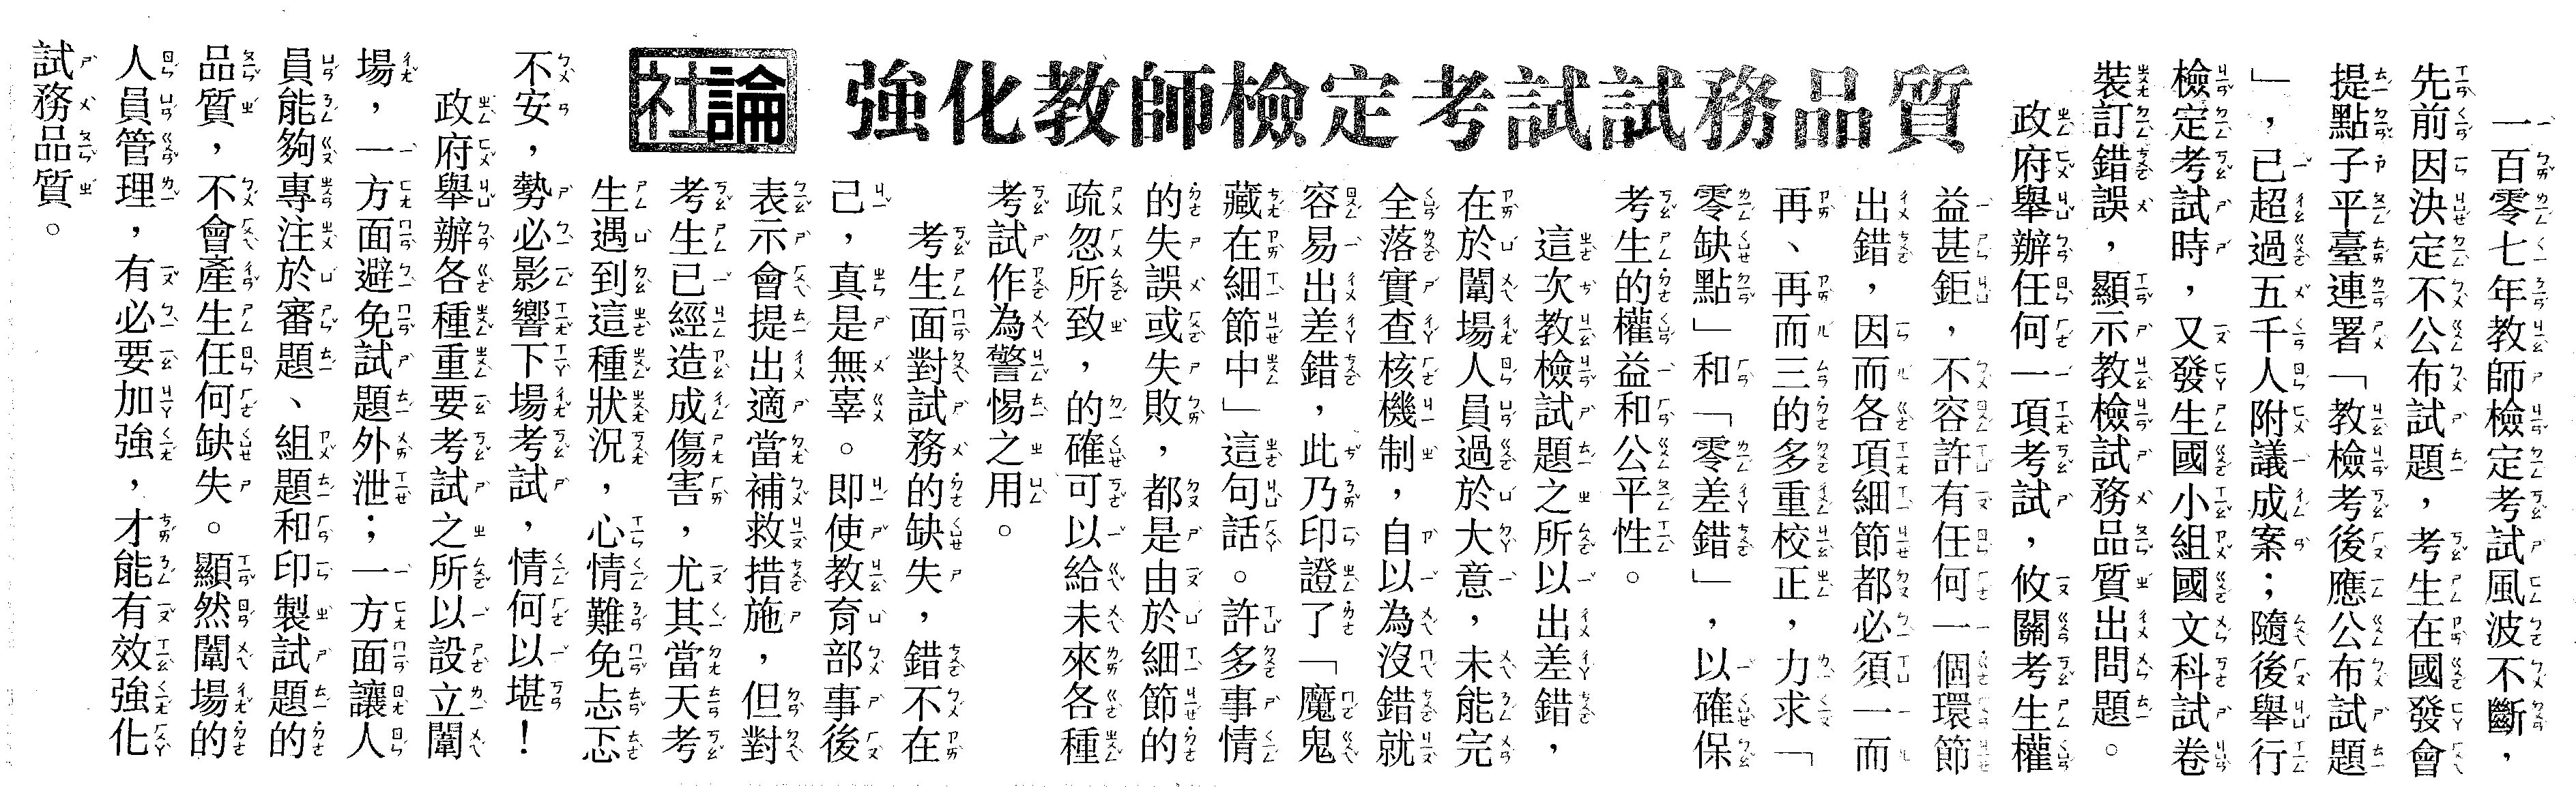 社論
強化教師檢定考試試務品質
一百零七年教師檢定考試風波不斷，
先前因決定不公布試題，考生在國發會
提點子平臺連署「教檢考後應公布試題
」，已超過五千人附議成案；隨後舉行
檢定考試時，又發生國小組國文科試卷
裝訂錯誤，顯示教檢試務品質出問題。
政府舉辦任何一項考試，攸關考生權
益甚鉅，不容許有任何一個環節
出錯，因而各項細節都必須一而
再、再而三的多重校正，力求「
零缺點」和「零差錯」，以確保
考生的權益和公平性。
這次教檢試題之所以出差錯，
在於闈場人員過於大意，未能完
全落實查核機制，自以為沒錯就
容易出差錯，此乃印證了「魔鬼
藏在細節中」這句話。許多事情
的失誤或失敗，都是由於細節的
疏忽所致，的確可以給未來各種
考試作為警惕之用。
考生面對試務的缺失，錯不在
己，真是無辜。即使教育部事後
表示會提出適當補救措施，但對
考生已經造成傷害，尤其當天考
生遇到這種狀況，心情難免忐忑
不安，勢必影響下場考試，情何以堪！
政府舉辦各種重要考試之所以設立闈
場，一方面避免試題外泄；一方面讓人
員能夠專注於審題、組題和印製試題的
品質，不會產生任何缺失。顯然闈場的
人員管理，有必要加強，才能有效強化
試務品質。